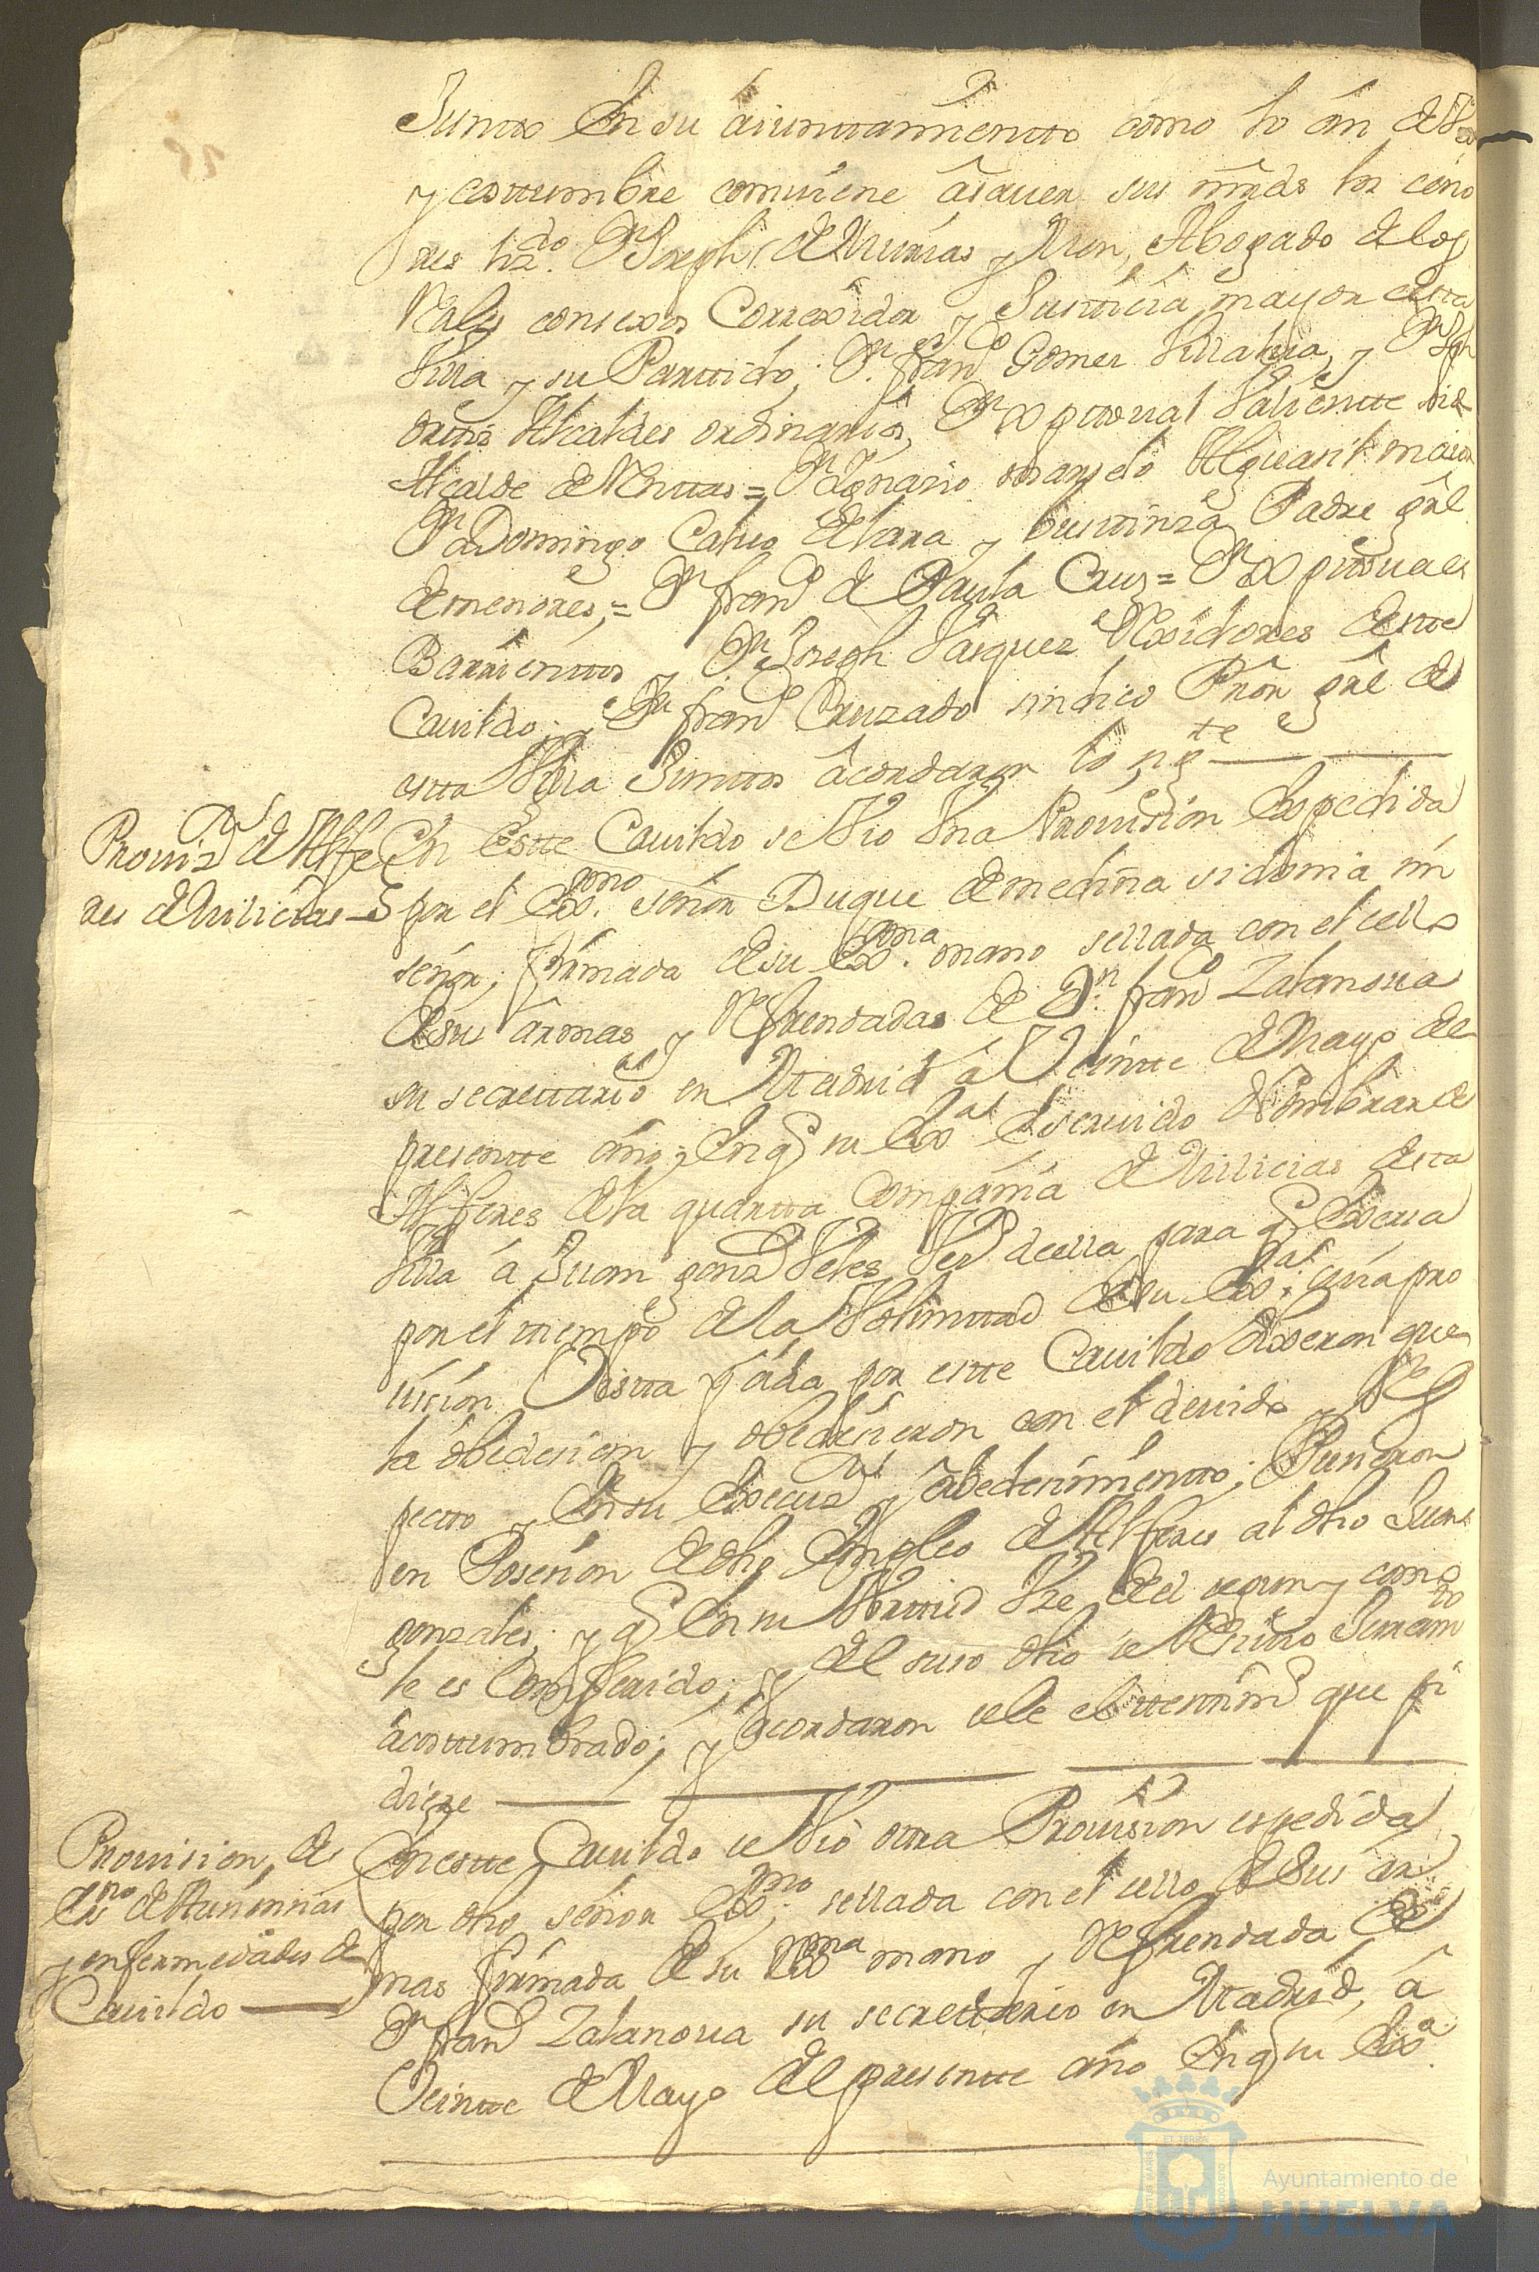 Juntos En su aiuntamientto como lo an de Vso
y costtumbre conviene âsaver sus mrds los ceño
res lizdo. Dn Joseph de Murias y Mon, Abogado delos
Rales consexos Correxidor y Justticia mayor destta
Villa y su Parttido; Dn. franco Gomes Villalva, y Dn Jph
orttis Alcaldes ordinarios, Dn Xptoval Valientte
Alcalde de Renttas= Dn Ygnasio Alguasil maior
Dn Domingo Calvo de lara y busttinza Padre gral
demenores,= Dn franco de Paula Cruz= Dn Xptoval
Barrienttos y Dn Joseph Vasquez Rexidores destte
Cavildo; y Dn franco Cruzado sindico Pror gral de
estta Villa Junttos acordaron lo sigte
Proviz.on de Alfe
res de Milicias
En Estte Cavildo se Vio Vna Provision Expedida
por el Exmo. señor Duque de medina sidonia mi
señor, firmada desu Exma. mano sellada con el cello
desus armas y Refrendadas de Dn. franco Zalanova
su secrettario en Madrid â Veintte de Mayo del
presentte año; En q su Exa aservido Nombrar de
Alferes dela quartta Compañia de Milicias desta
Villa â Juan gonz Veles Veo deella para q Exersa
por el tiempo dela Volunttad desu Exa; cuia pro
vision Vistta y oida por estte Cavildo dixeron que
la obedecian y obedecieron con el devido Res
pectto y En su Execuzon y obedecimientto; Pusieron
en Posecion dedho Empleo de Alferes al dho Juan
gonzales; y q En su Virttud Vse del segun y como
le es Conferido; y del suso dho se Recivio Juramto
acosttumbrado; y acordaron sele el testtimo que pi
diere
Provision, de
Esno de
y enfermedades de
Cavildo
En estte Cavildo se Vio ottra Provision espedida
por dho señor Exmo; sellada con el cello de Sus ar
mas firmada de su Exma mano y Refrendada de
Dn franco Zalanova su secrettario en Madrid, â
Veintte de Mayo del presentte año En q su Exa.
Ayuntamiento de
HUELVA